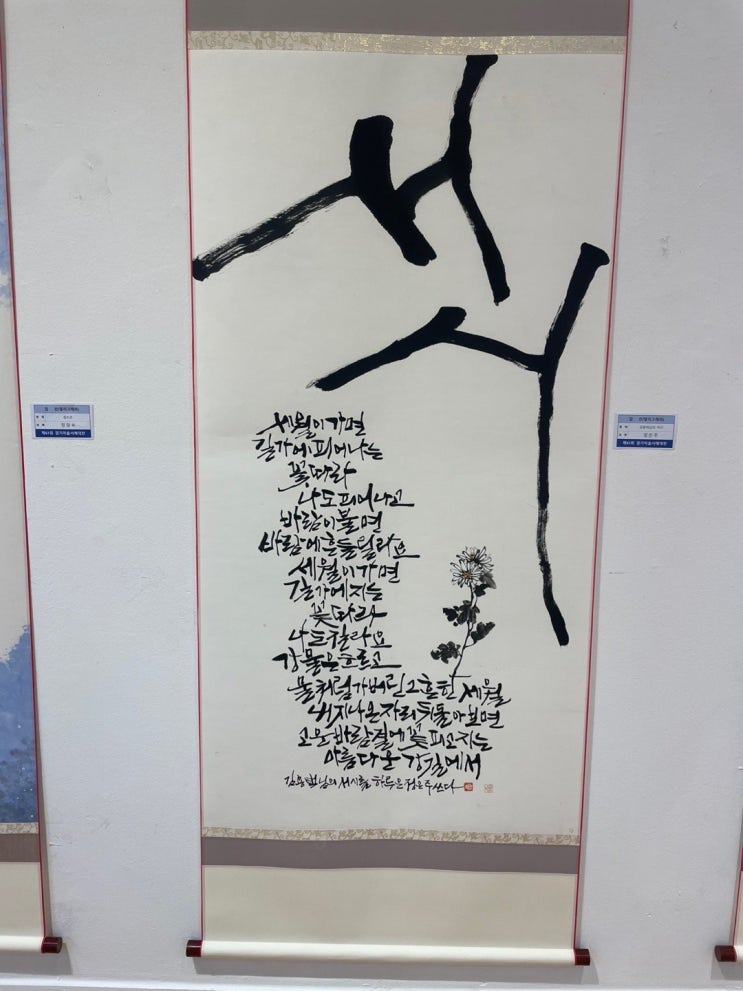 서시
세월이 가면
길가에 피어나는
꽃 따라
나도 피어나고
바람이 불면
바람에 흔들릴라요
세월이 가면
길가에 지는
꽃 따라
나도 질라요
강물은 흐르고
물처럼 가버린 그 흔한 세월
내 지나온 자리 뒤돌아보면
고운 바람결에 꽃 피고 지는
아름다운 강길에서
김용택님의 서시를 정은주 쓰다